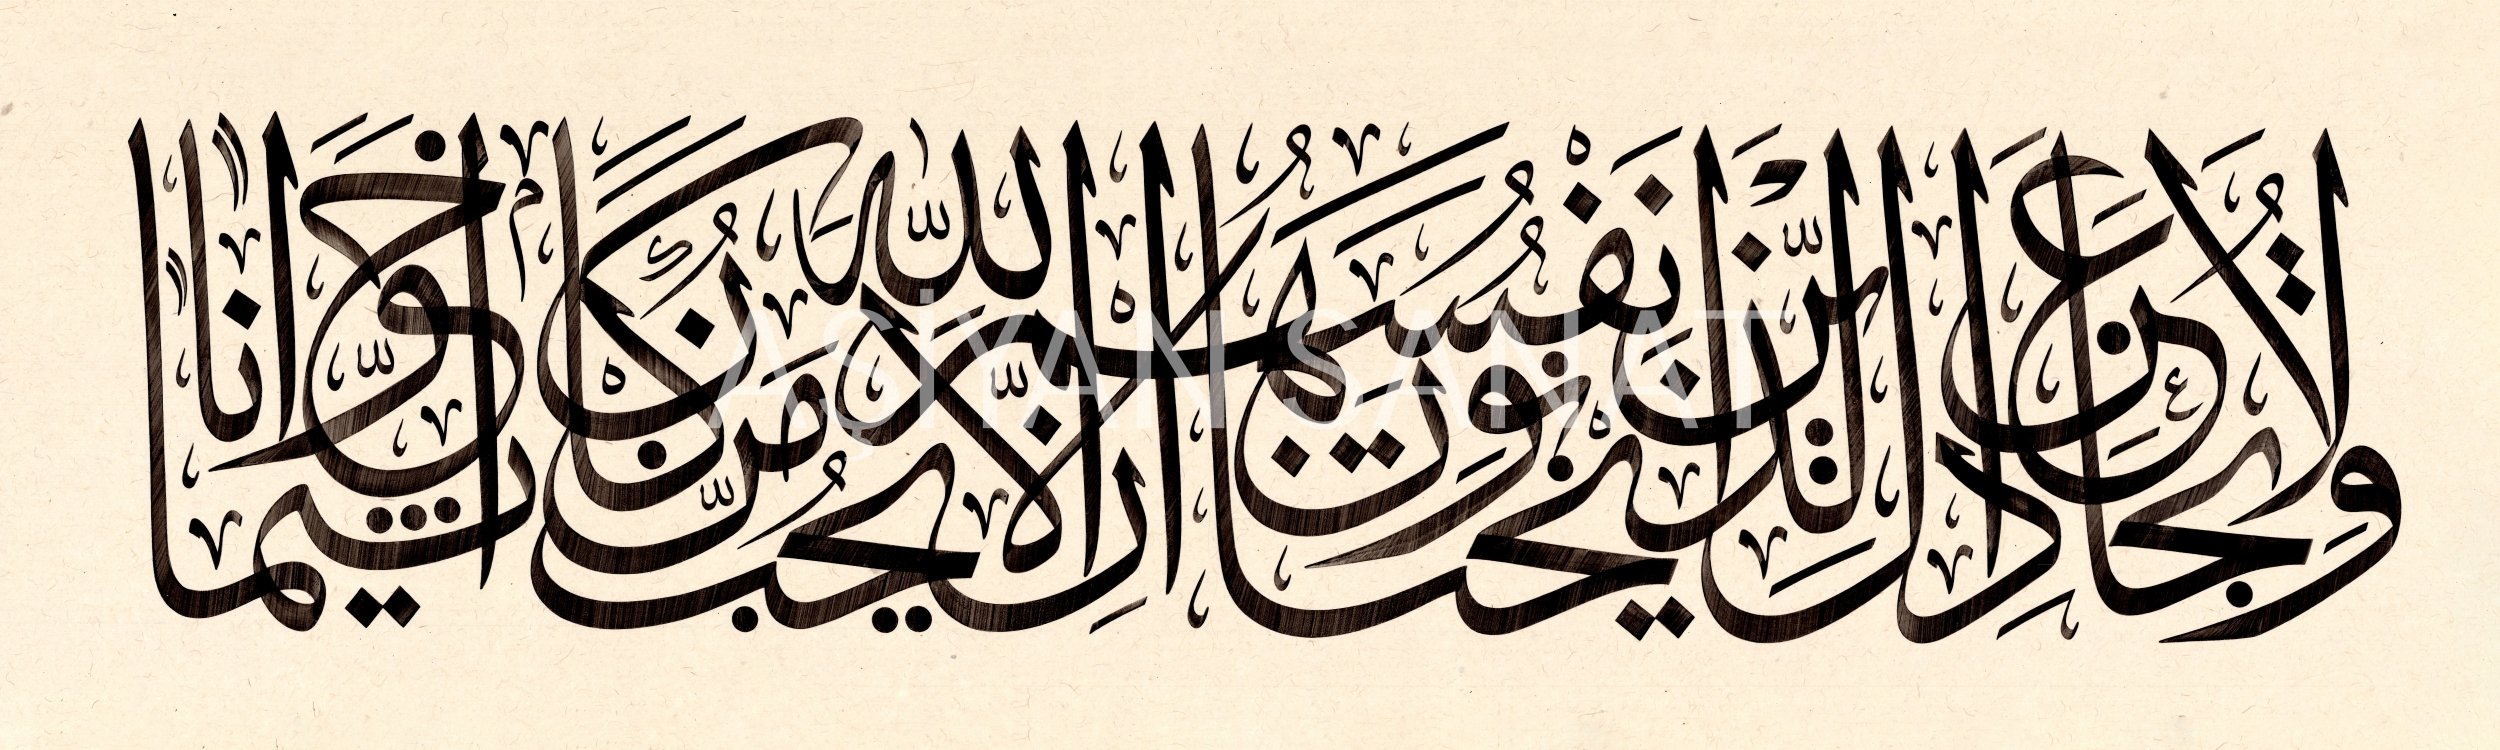 ولا تجادل عن الذين يختانون أنفسهم إن الله لا يحب من كان خوانا أثيما
AŞİYAN SANAT